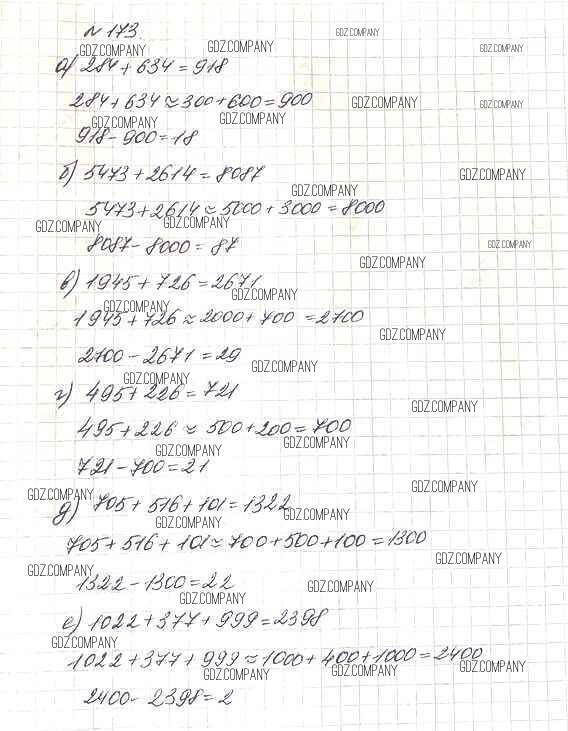 № 173
GDZ.COMPANY GDZ.COMPANY GDZ.COMPANY GDZ.COMPANY
а) 284 + 634 = 918
284 + 634 ≈ 300 + 600 = 900 GDZ.COMPANY GDZ.COMPANY
GDZ.COMPANY GDZ.COMPANY
918 - 900 = 18
б) 5473 + 2614 = 8087 GDZ.COMPANY
GDZ.COMPANY
5473 + 2614 ≈ 5000 + 3000 = 8000
GDZ.COMPANY GDZ.COMPANY
8087 - 8000 = 87 GDZ.COMPANY
GDZ.COMPANY
в) 1945 + 726 = 2671
GDZ.COMPANY GDZ.COMPANY
1945 + 726 ≈ 2000 + 700 = 2700
GDZ.COMPANY
2700 - 2671 = 29 GDZ.COMPANY
GDZ.COMPANY
г) 495 + 226 = 721
GDZ.COMPANY
495 + 226 ≈ 500 + 200 = 700
GDZ.COMPANY GDZ.COMPANY
721 - 700 = 21
GDZ.COMPANY GDZ.COMPANY
д) 705 + 516 + 101 = 1322
GDZ.COMPANY GDZ.COMPANY
705 + 516 + 101 ≈ 700 + 500 + 100 = 1300
GDZ.COMPANY
GDZ.COMPANY
1322 - 1300 = 22 GDZ.COMPANY
GDZ.COMPANY
е) 1022 + 377 + 999 = 2398
GDZ.COMPANY
1022 + 377 + 999 ≈ 1000 + 400 + 1000 = 2400
GDZ.COMPANY GDZ.COMPANY GDZ.COMPANY
2400 - 2398 = 2